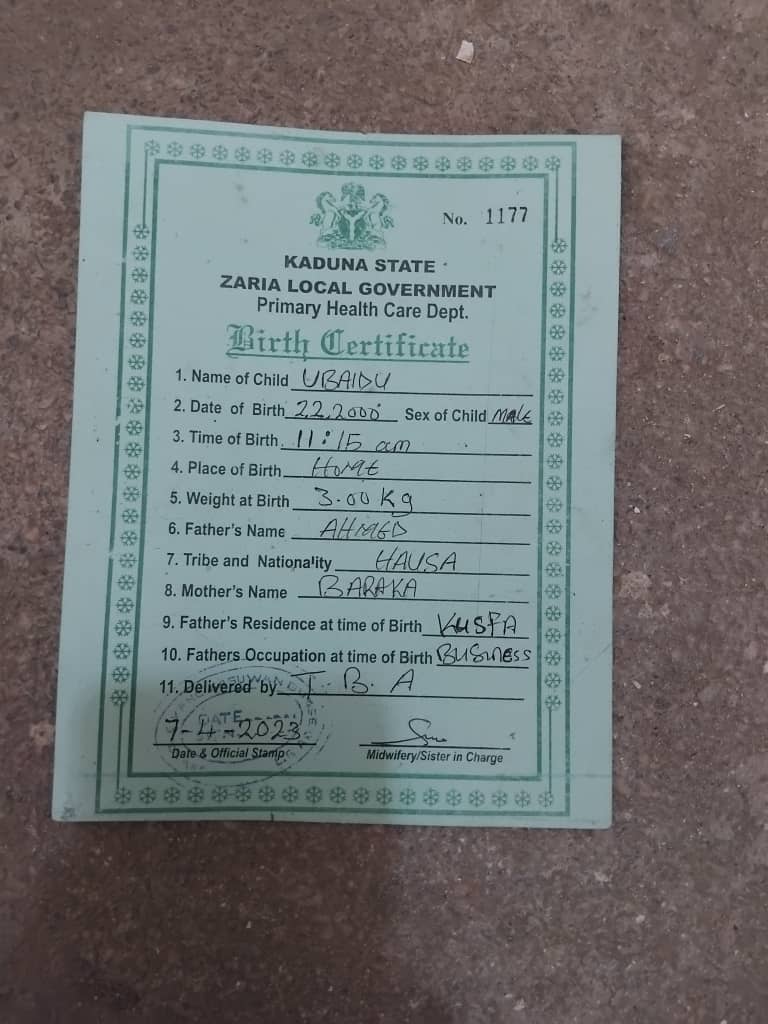 No. 1177
KADUNA STATE
ZARIA LOCAL GOVERNMENT
Primary Health Care Dept.
Birth Certificate
1. Name of Child UBAIDU
2. Date of Birth 2.2.2000 Sex of Child MALE
3. Time of Birth 11:15 am
4. Place of Birth HOME
5. Weight at Birth 3.00 Kg
6. Father's Name AHMED
7. Tribe and Nationality HAUSA
8. Mother's Name BARAKA
9. Father's Residence at time of Birth KUSFA
10. Fathers Occupation at time of Birth BUSINESS
11. Delivered by T. B. A
DATE
7-4-2023
Date & Official Stamp Midwifery/Sister in Charge